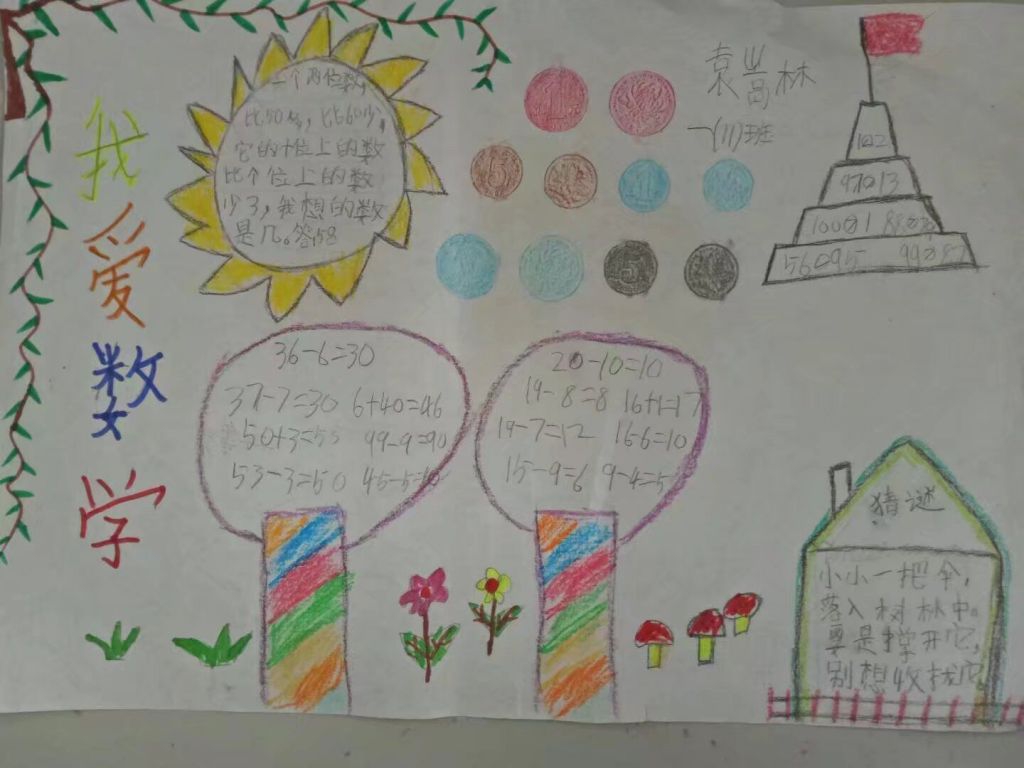 我爱数学
一个两位数
比50多，比60少，
它的十位上的数
比个位上的数
少3，我想的数
是几。答58
1
5
1
5
袁嵩林
一(11)班
102
97013
10001 
156095 99087
36-6=30
37-7=30 6+40=46
50+3=53 99-9=90
53-3=50 45-5=40
20-10=10
19-8=8 16+1=17
19-7=12 16-6=10
15-9=6 9-4=5
猜谜
小小一把伞，
落入树林中。
要是撑开它，
别想收拢它